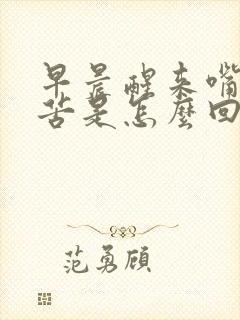 早晨醒来嘴
苦是怎麼回
范勇顾